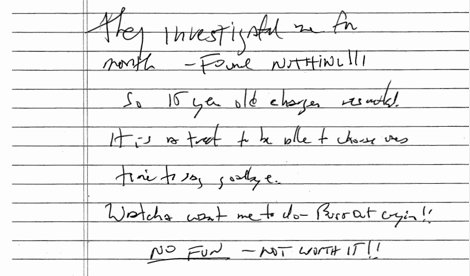 They investigated me for
month - Found NOTHING!!!
So 16 year old charges resulted.
It is a treat to be able to choose ones
time to say goodbye.
Watcha want me to do - Burst out crying!!
NO FUN - NOT WORTH IT!!